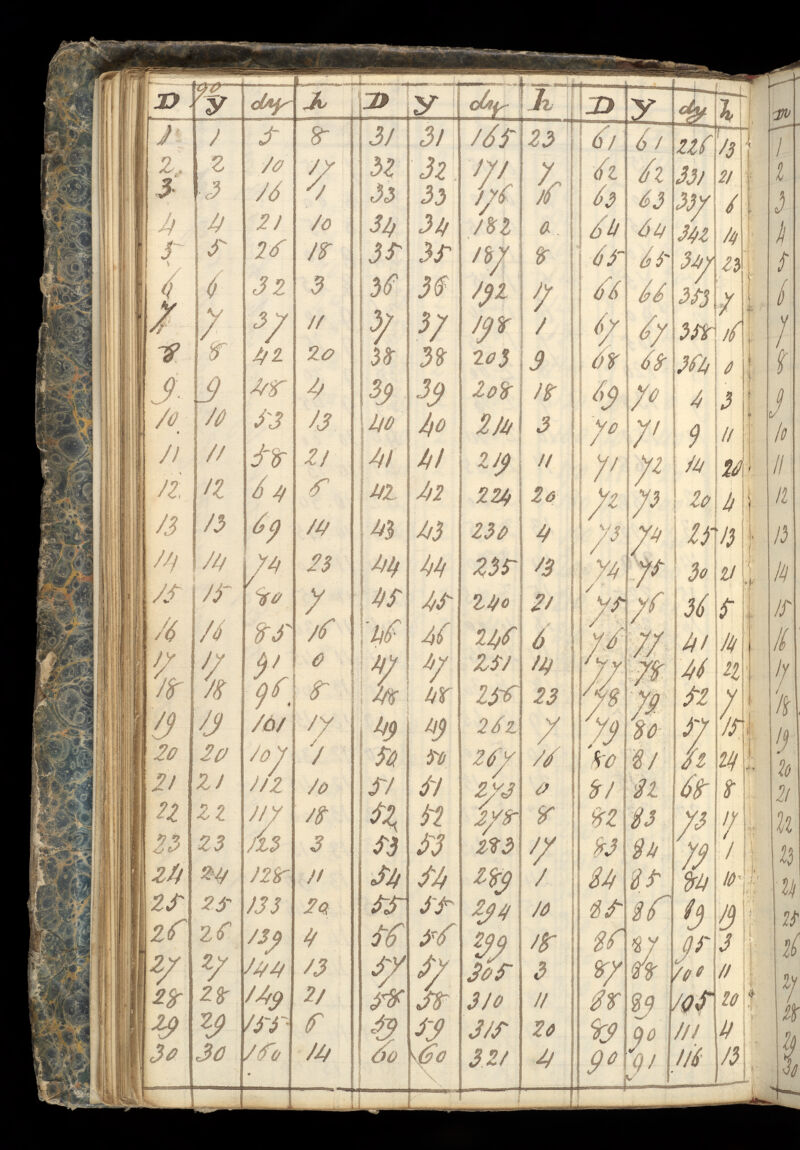 90
D y dy h D y dy h D y dy h m
1 1 5 8 31 31 165 23 61 61 226 13 1
2 2 10 17 32 32 171 7 62 62 331 21 2
3 3 16 1 33 33 176 16 63 63 337 6 3
4 4 21 10 34 34 182 0 64 64 342 14 4
5 5 26 18 35 35 187 8 65 65 347 23 5
6 6 32 3 36 36 192 17 66 66 353 7 6
7 7 37 11 37 37 198 1 67 67 358 16 7
8 8 42 20 38 38 203 9 68 68 364 0 8
9 9 48 4 39 39 208 18 69 70 4 3 9
10 10 53 13 40 40 214 3 70 71 9 11 10
11 11 58 21 41 41 219 11 71 72 14 20 11
12 12 64 6 42 42 224 20 72 73 20 4 12
13 13 69 14 43 43 230 4 73 74 25 13 13
14 14 74 23 44 44 235 13 74 75 30 21 14
15 15 80 7 45 45 240 21 75 76 36 5 15
16 16 85 16 46 46 246 6 76 77 41 14 16
17 17 91 0 47 47 251 14 77 78 46 22 17
18 18 96 8 48 48 256 23 78 79 52 7 18
19 19 101 17 49 49 262 7 79 80 57 15 19
20 20 107 1 50 50 267 16 80 81 62 24 20
21 21 112 10 51 51 273 0 81 82 68 8 21
22 22 117 18 52 52 278 8 82 83 73 17 22
23 23 123 3 53 53 283 17 83 84 79 1 23
24 24 128 11 54 54 289 1 84 85 84 10 24
25 25 133 20 55 55 294 10 85 86 89 19 25
26 26 139 4 56 56 299 18 86 87 95 3 26
27 27 144 13 57 57 305 3 87 88 100 11 27
28 28 149 21 58 58 310 11 88 89 105 20 28
29 29 155 6 59 59 315 20 89 90 111 4 29
30 30 160 14 60 60 321 4 90 91 116 13 30